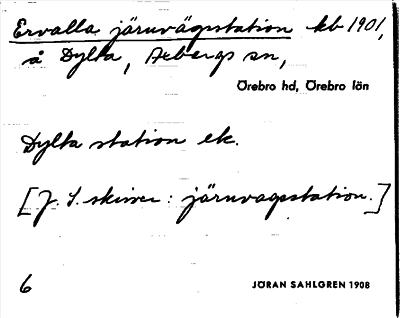 Ervalla järnvägsstation kb 1901,
å Dylta, Axbergs sn,
Örebro hd, Örebro län
Dylta station ek.
[J. S. skriver: järnvagsstation.]
6
JÖRAN SAHLGREN 1908